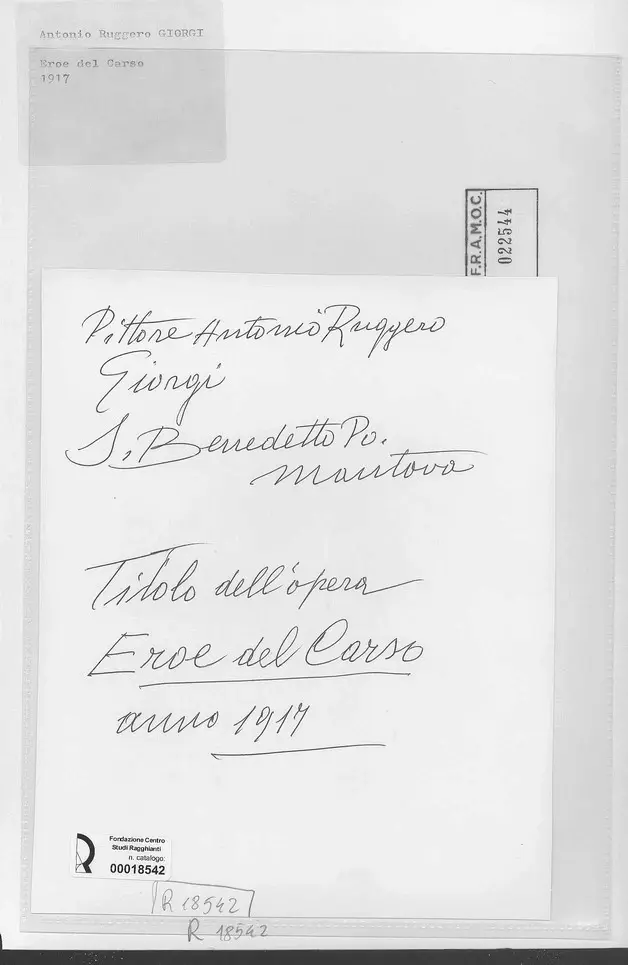 Antonio Ruggero GIORGI
Eroe del Carso
1917
F.R.A.M.O.C.
022544
Pittore Antonio Ruggero
Giorgi
S. Benedetto Po.
Mantova
Titolo dell'opera
Eroe del Carso
anno 1917
Fondazione Centro
Studi Ragghianti
n. catalogo:
00018542
R 18542
R 18542